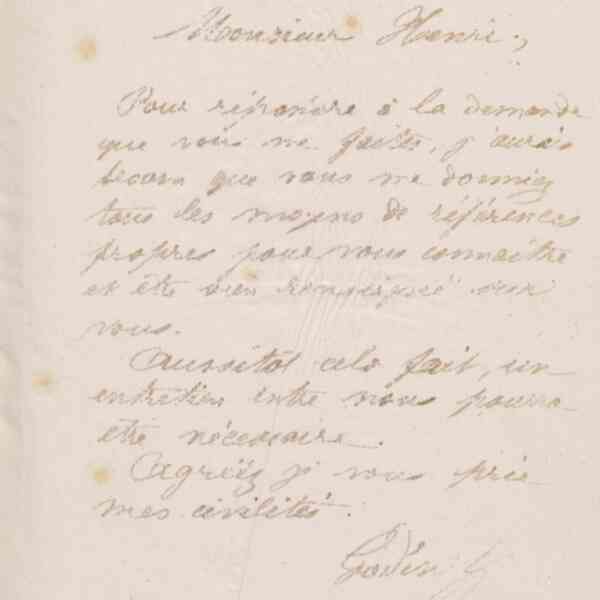 Monsieur Henri,
Pour répondre à la demande
que vous me faites, j'aurais
besoin que vous me donniez
tous les moyens de références
propres pour vous connaître
et être bien renseigné sur
vous.
Aussitôt cela fait, un
entretien entre nous pourra
être nécessaire.
Agréez je vous prie
mes civilités.
Godin